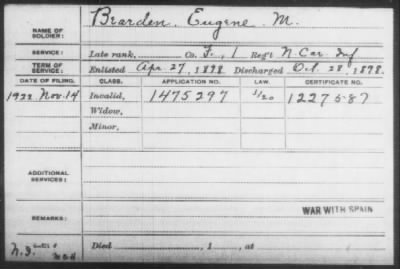 NAME OF SOLDIER: Brarden, Eugene M.
SERVICE: Late rank, Co. F, 1 Reg't N. Car. Inf
TERM OF SERVICE: Enlisted Apr 27, 1898, Discharged Oct. 28, 1898.
DATE OF FILING. CLASS. APPLICATION NO. LAW. CERTIFICATE NO.
1922 Nov. 14 Invalid, 1475297 3/20 1227587
Widow,
Minor,
ADDITIONAL SERVICES:
WAR WITH SPAIN
REMARKS:
Died , 1 , at